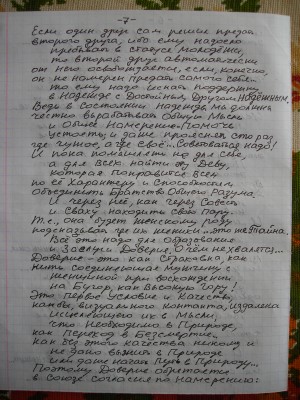 -7-
Если один друг сам решил предать
второго друга, ибо ему надоело
пребывать в статусе молодёжи,
то второй друг автоматически
от неё освобождается, если, конечно,
он не намерен предать самого себя.
то ему надо искать поддержку
в Надежде с Достойным Другом Надёжным.
Ведь в Состоянии Надежда мы должны
честно вырабатывать Общую Мысль
и Общее Намерение. Помочь
устоять и даже прояснять сто раз
где чужое, а где своё. Советоваться надо!
И пока помышлять не для себя,
а для всех найти ту Деву,
которая понравится всем
по её Характеру и Способности
объединить Братство Общего Разума.
И через неё, как через Совесть
и Сваху находить свою Пару...
Т.е. она будет женскому полу
подсказывать где их женихи - это не тайна.
Всё это надо для Образования
и Завязи Доверия. О нём не хвалятся...
Доверие - это как Страховка, как
нить соединяющая Мужчину с
женщиной при восхождении
на Бугор, как Высокую Гору!
Это первое Условие и Качество
начала визуального контакта, издалека
исцеляющего их в Мысли,
что Необходимо в Природе,
как Переход в Безсмертие.
как без этого качества никому и
не дано выжить в Природе
или даже начать Путь в Природу...
Поэтому Доверие обретается
в Союзе согласия по Намерению: